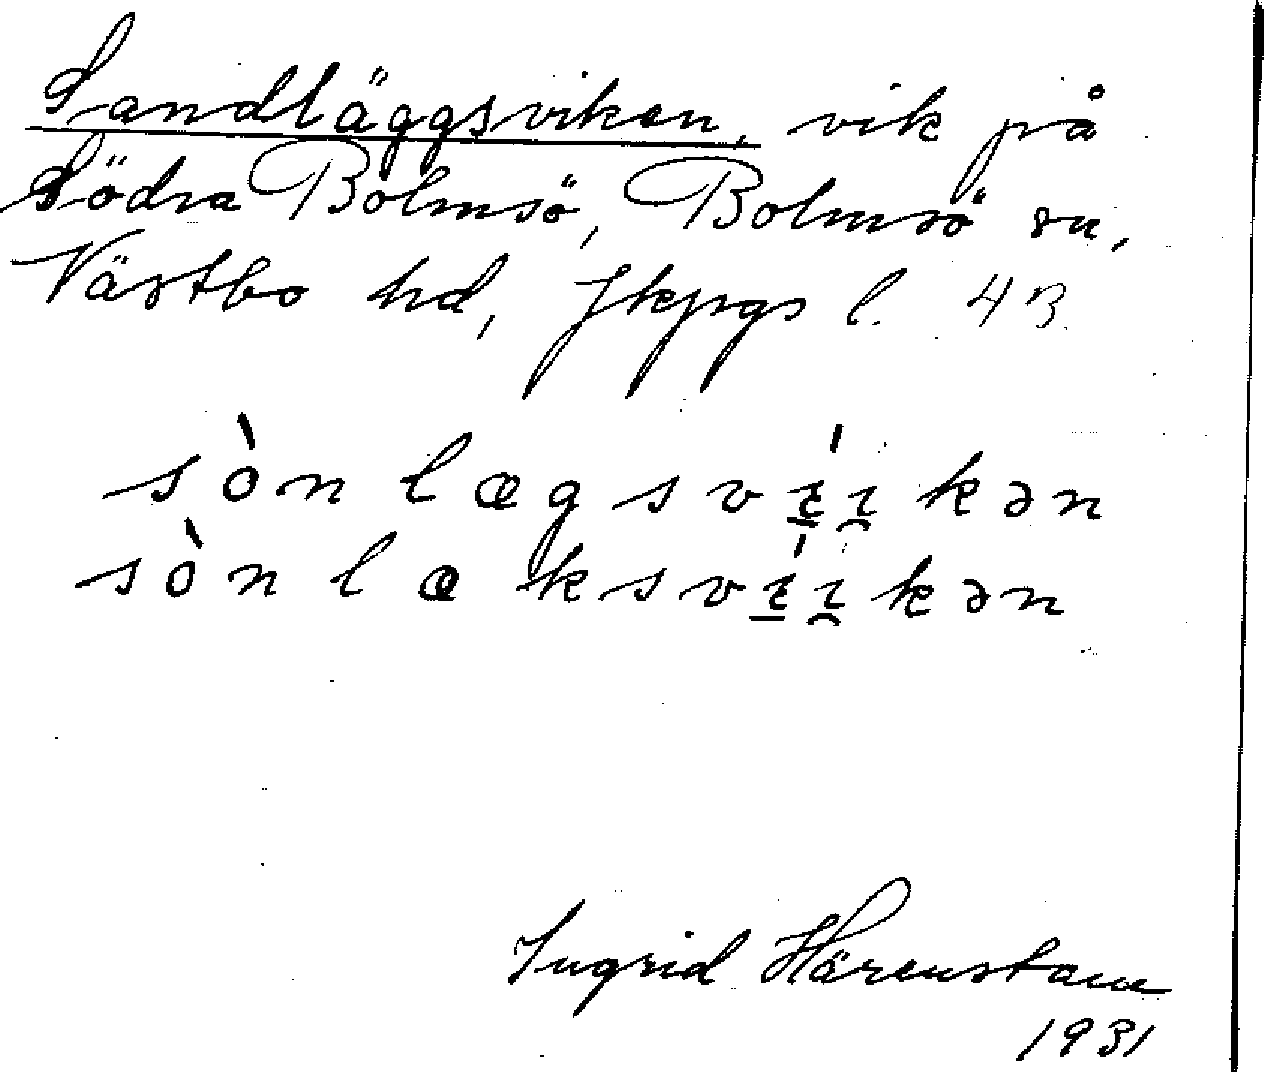 Sandläggsviken, vik på
Södra Bolmsö, Bolmsö sn,
Västbo hd, Jkpgs l. 43
sòn lægsvíi̯kən
sòn læksvíi̯kən
Ingrid Härenstam
1931